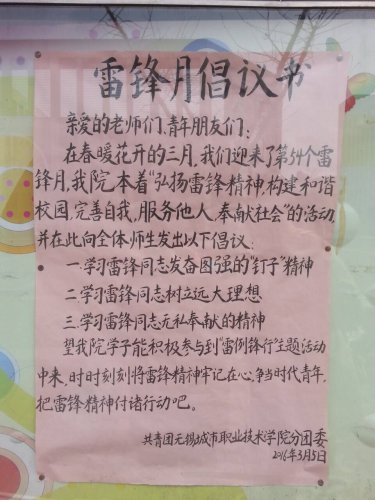 雷锋月倡议书
亲爱的老师们、青年朋友们:
在春暖花开的三月,我们迎来了第54个雷
锋月,我院本着“弘扬雷锋精神构建和谐
校园,完善自我,服务他人,奉献社会”的活动,
并在此向全体师生发出以下倡议:
一.学习雷锋同志发奋图强的“钉子”精神
二.学习雷锋同志树立远大理想
三.学习雷锋同志无私奉献的精神
望我院学子能积极参与到“雷例锋行”主题活动
中来,时时刻刻将雷锋精神牢记在心,争当时代青年,
把雷锋精神付诸行动吧。
共青团无锡城市职业技术学院分团委
2016年3月5日